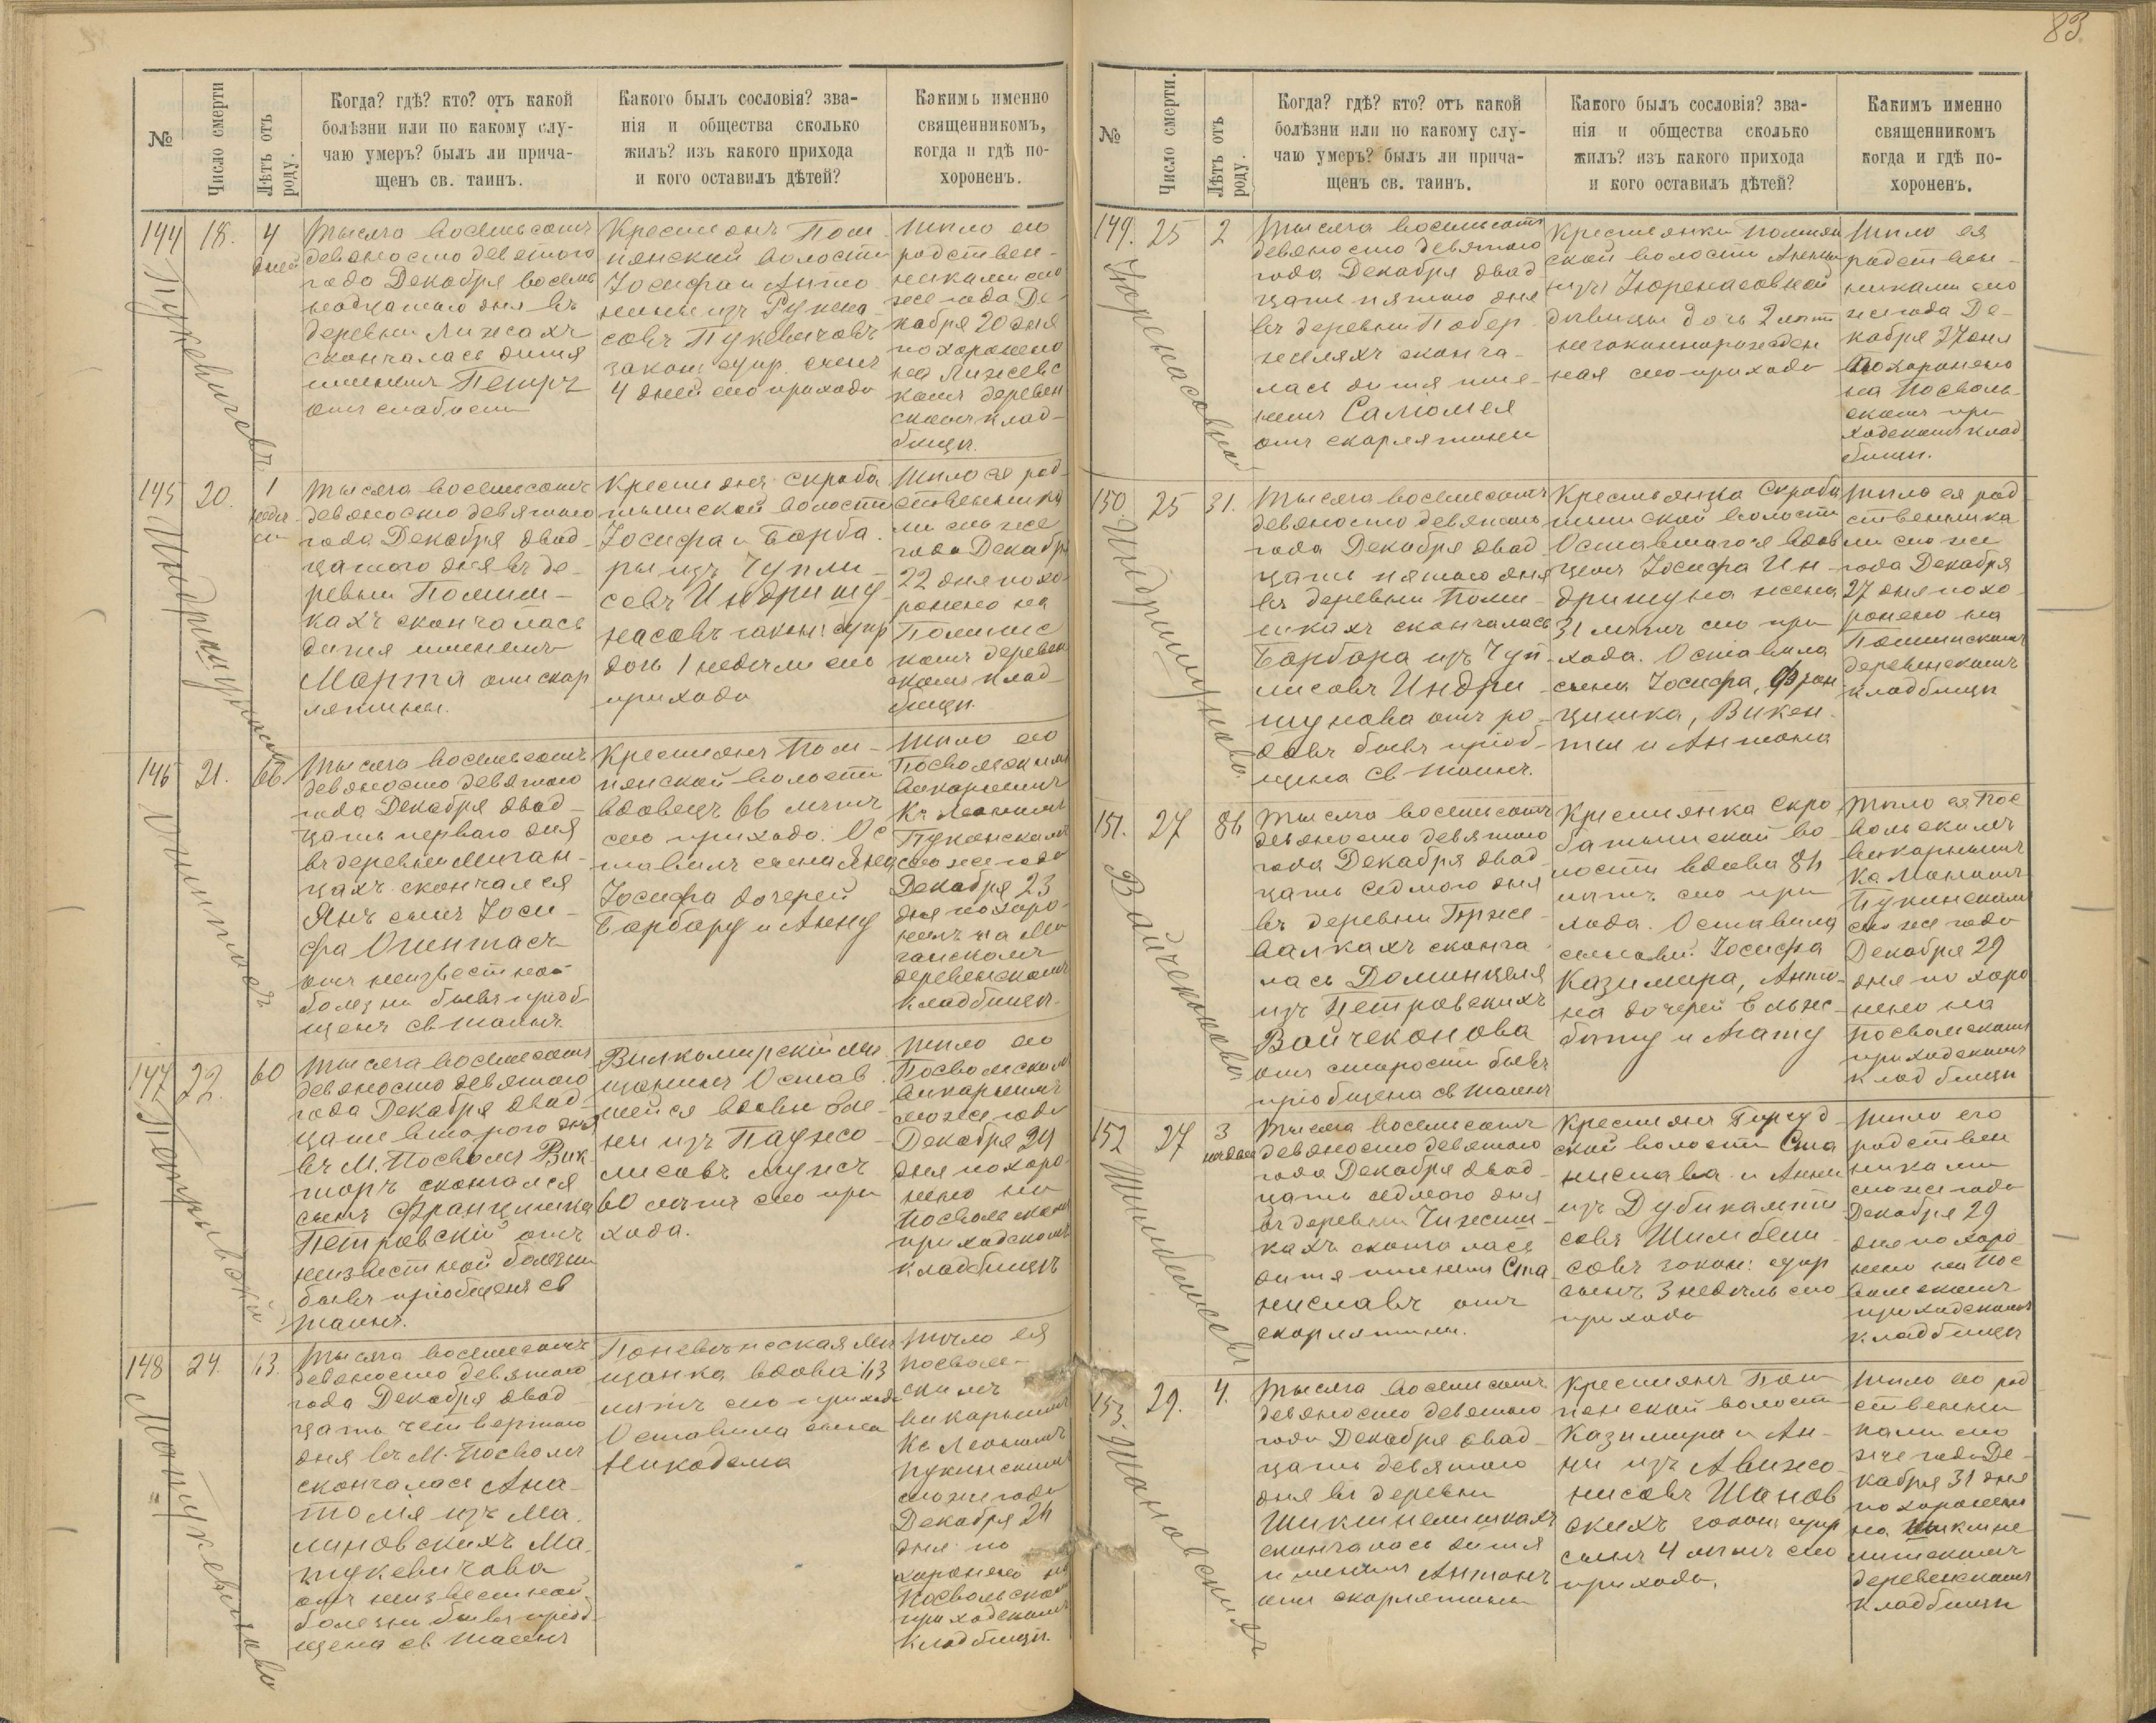 83.
№
Число смерти
Лѣтъ отъ роду.
Когда? гдѣ? кто? отъ какой
болѣзни или по какому слу-
чаю умеръ? былъ ли прича-
щенъ св. таинъ.
Какого былъ сословія? зва-
нія и общества сколько
жилъ? изъ какого прихода
и кого оставилъ дѣтей?
Какимъ именно
священникомъ,
когда и гдѣ по-
хороненъ.
144
Пукевичевъ.
18.
4
дней
Тысяча восемьсотъ
девяносто девятого
года Декабря восемь
надцатого дня въ
деревни Лижахъ
скончалась дитя
именемъ Петръ
отъ слабости
Крестьянъ Пом
пянской волости
Іосифа и Анто
нины изъ
совъ Пукевичовъ
закон: супр. сынъ
4 дней сто прихода
Тѣло его
родствен-
никами сто
же года Де-
кабря 20 дня
похоронено
на Лижевс
комъ деревен
скомъ клад-
бищѣ.
145
20.
1
недѣл
Тысяча восемьсотъ
девяносто девятого
года Декабря двад-
цатого дня въ де-
ревни
кахъ скончалась
дитя именемъ
Марта отъ скар
лятины.
Крестьянъ Скроба
тышской волости
Іосифа и Барба
ры изъ Чупли-
совъ Индришу
насовъ закон: супр
дочь 1 недѣли сто
прихода
Тѣло ея род-
ственника
ми сто же
года Декабр
22 дня похо-
ронено на
комъ деревен
скомъ клад
бищѣ.
146
21.
66.
Тысяча восемьсотъ
девяносто девятого
года Декабря двад-
цать перваго дня
въ деревни Миган-
цахъ скончался
Янъ сынъ Іоси-
фа Огинтасъ
отъ неизвестной
болезни бывъ пріоб-
щенъ св таинъ.
Крестьянъ Пом-
пянской волости
вдовецъ 66 лѣтъ
сто прихода. Ос
тавилъ сына Яна
Іосифа дочерей
Барбару и Анну
Тѣло его
Посвольскимъ
викарнымъ
Кс Леономъ
Пукинскимъ
сто же года
Декабря 23
дня похоро-
ненъ на Ми
ганскомъ
деревенскомъ
кладбищѣ.
147
Петровскій
22.
60
Тысяча восемьсотъ
девяносто девятого
года Декабря двад-
цать второго дня
въ М. Посволѣ Вик
торъ скончался
сынъ Францишка
Петровскій отъ
неизвестной болезни
бывъ пріобщенъ св
таинъ.
Вилкомирскій мѣ
щанинъ Остав
шейся вдовы
ны изъ
лисовъ мужъ
60 лѣтъ сто при
хода.
Тѣло его
Посвольским
викарнымъ
сто же года
Декабря 24
дня похоро-
нено на
Посвольском
приходскомъ
кладбищѣ
148
Мацукевичова
24.
63.
Тысяча восемьсотъ
девяносто девятого
года Декабря двад
цать четвертого
дня въ М. Посволѣ
скончалась Ана
толія изъ Ма
линовскихъ Ма-
цукевичова
отъ неизвестной
болезни бывъ пріоб-
щена св таинъ
Поневѣжская мѣ
щанка вдова 63
лѣтъ сто прихода
Оставила сына
Никодема
Тѣло ея
Посволь-
скимъ
викарнымъ
Кс Леономъ
Пукинскимъ
сто же года
Декабря 26
дня по
хоронено на
Посвольском
приходскомъ
кладбищѣ.
№
Число смерти.
Лѣтъ отъ роду.
Когда? гдѣ? кто? отъ какой
болѣзни или по какому слу-
чаю умеръ? былъ ли прича-
щенъ св. таинъ.
Какого былъ сословія? зва-
нія и общества сколько
жилъ? изъ какого прихода
и кого оставилъ дѣтей?
Какимъ именно
священникомъ
когда и гдѣ по-
хороненъ.
149.
25
2
Тысяча восемьсотъ
девяносто девятого
года Декабря двад
цать пятого дня
въ деревни Побер
желяхъ сконча-
лась дитя име-
немъ Саломея
отъ скарлятины
Крестьянки Помпян
ской волости Анны
изъ Юренасовной
дѣвицы дочь 2 лѣтъ
незаконнорожден
ная сто прихода
Тѣло ея
родствен-
никами сто
же года Де-
кабря 27 дня
похоронено
на Посволь-
скомъ при
ходскомъ клад
бищѣ.
150.
Индришунова
25
31.
Тысяча восемьсотъ
девяносто девятого
года Декабря двад
цать пятого дня
въ деревни
кахъ скончалась
Барбара изъ Чуп
лисовъ Индри-
шунова отъ ро-
довъ бывъ пріоб-
щена св таинъ.
Крестьянка Скроба
тышской волости
Оставшагося вдов
цемъ Іосифа Ин-
дришуна жена
31 лѣтъ сто при
хода. Оставила
сына Іосифа, Фран
цишка, Викен-
тія и Антона
Тѣло ея род
ственника
ми сто же
года Декабря
27 дня похо
ронено на
деревенскомъ
кладбищѣ
151.
Вайчеконова
27
86
Тысяча восемьсотъ
девяносто девятого
года Декабря двад
цать седмого дня
въ деревни Гриже-
валкахъ сконча
лась Доминцеля
изъ Петровскихъ
Войчеконова
отъ старости бывъ
пріобщена св таинъ
Крестьянка Скро
батышской во-
лости вдова 86
лѣтъ сто при
хода. Оставила
сыновей Іосифа
Казимира, Анто-
на дочерей Ельже-
бету и Агату
Тѣло ея Пос
вольскимъ
викарнымъ
Кс Леономъ
Пукинскимъ
сто же года
Декабря 29
дня по хоро
нено на
Посвольскомъ
приходскомъ
кладбищѣ
152
27
3
недѣли
Тысяча восемьсотъ
девяносто девятого
года Декабря двад-
цать седмого дня
въ деревни
кахъ скончалась
дитя именемъ Ста
ниславъ отъ
скарлятины.
Крестьянъ
ской волости Ста
нислава и Анны
изъ
совъ
совъ закон: супр
сынъ 3 недѣль сто
прихода
Тѣло его
родствен
никами
сто же года
Декабря 29
дня похоро-
нено на Пос
вольскомъ
приходскомъ
кладбищѣ
153.
Шановскихъ
29.
4.
Тысяча восемьсотъ
девяносто девятого
года Декабря двад-
цать девятого
дня въ деревни
скончалась дитя
именемъ Антонъ
отъ скарлятины
Крестьянъ Пом
пянской волост
Казимира и Ан-
ны изъ Авижо
нисовъ Шанов
скихъ закон: супр
сынъ 4 лѣтъ сто
прихода.
Тѣло его род
ственни
ками сто
же года Де-
кабря 31 дня
похоронено
на
деревенскомъ
кладбищѣ